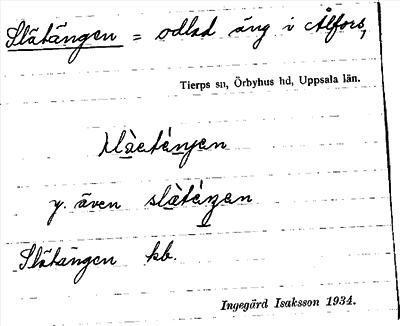 Slätängen = odlad äng i Ålfors,
Tierps sn, Örbyhus hd, Uppsala län.
y. även slà̀téŋen
Slätängen kb.
Ingegärd Isaksson 1934.